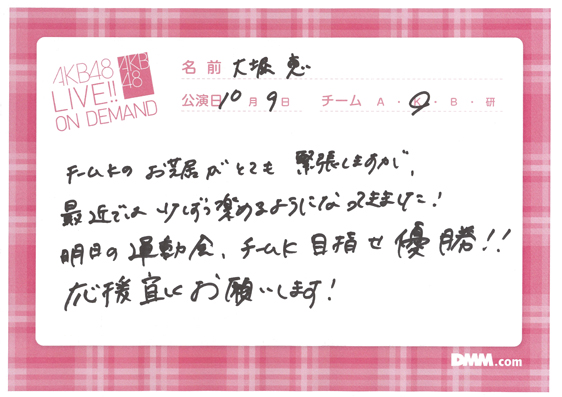 AKB48
LIVE!!
ON DEMAND
AKB
48
名前 大堀 恵
公演日 10月9日 チーム A・K・B・研
チームKのお芝居がとても 緊張しますが、
最近では少しずつ楽めるようになってきました!
明日の運動会、チームK 目指せ優勝!!
応援宜しくお願いします!
DMM.com